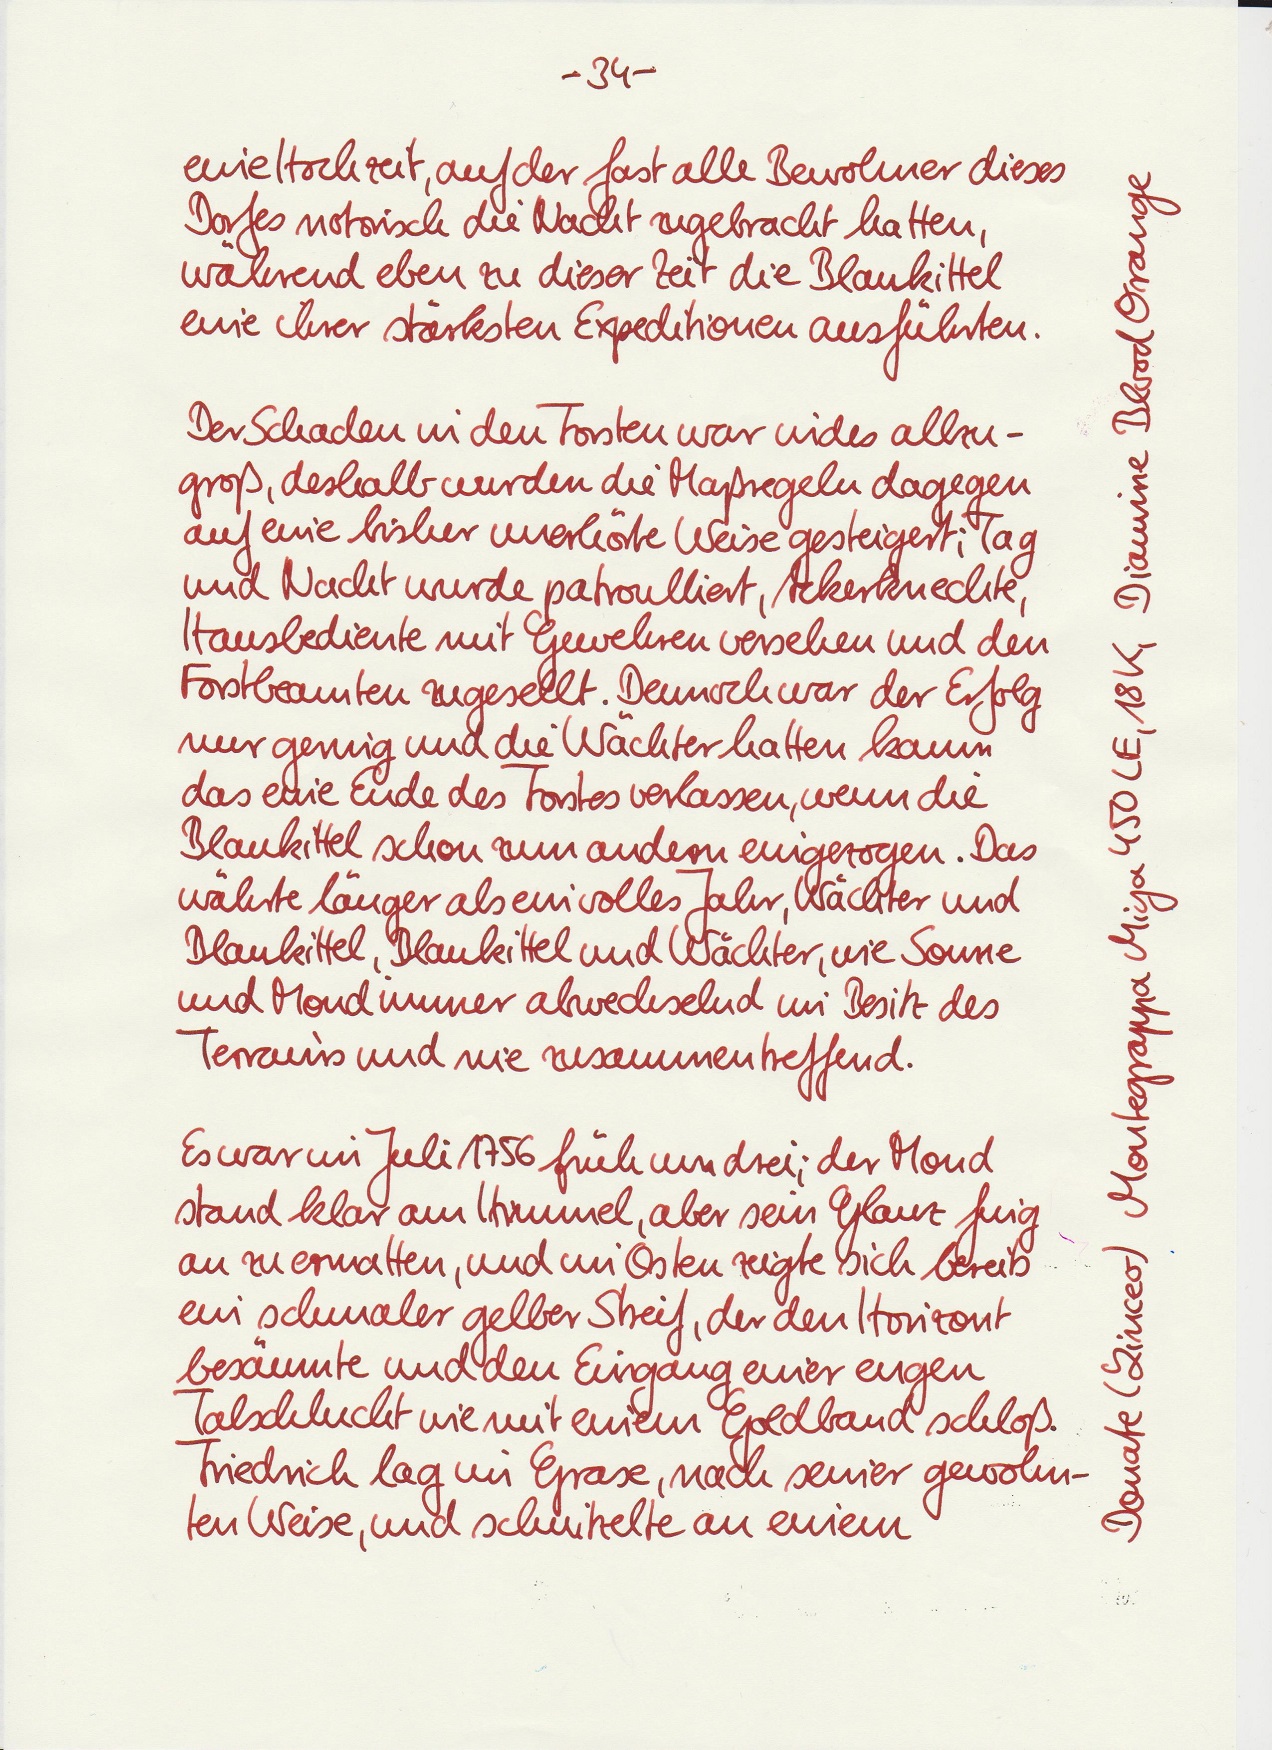 -34-
eine Hochzeit, auf der fast alle Bewohner dieses
Dorfes notorisch die Nacht zugebracht hatten,
während eben zu dieser Zeit die Blaukittel
eine ihrer stärksten Expeditionen ausführten.
Der Schaden in den Forsten war indes allzu-
groß, deshalb wurden die Maßregeln dagegen
auf eine bisher unerhörte Weise gesteigert; Tag
und Nacht wurde patroulliert, Ackerknechte,
Hausbediente mit Gewehren versehen und den
Forstbeamten zugesellt. Dennoch war der Erfolg
nur gering und die Wächter hatten kaum
das eine Ende des Forstes verlassen, wenn die
Blaukittel schon zum andern einzogen. Das
währte länger als ein volles Jahr, Wächter und
Blaukittel, Blaukittel und Wächter, wie Sonne
und Mond immer abwechselnd im Besitz des
Terrains und nie zusammentreffend.
Es war im Juli 1756 früh um drei; der Mond
stand klar am Himmel, aber sein Glanz fing
an zu ermatten, und im Osten zeigte sich bereits
ein schmaler gelber Streif, der den Horizont
besäumte und den Eingang einer engen
Talschlucht wie mit einem Goldband schloß.
Friedrich lag im Grase, nach seiner gewohn-
ten Weise, und schnitzelte an einem
Donate (Linceo) Montegrappa Miya 450 LE, 18K, Diamine Blood Orange